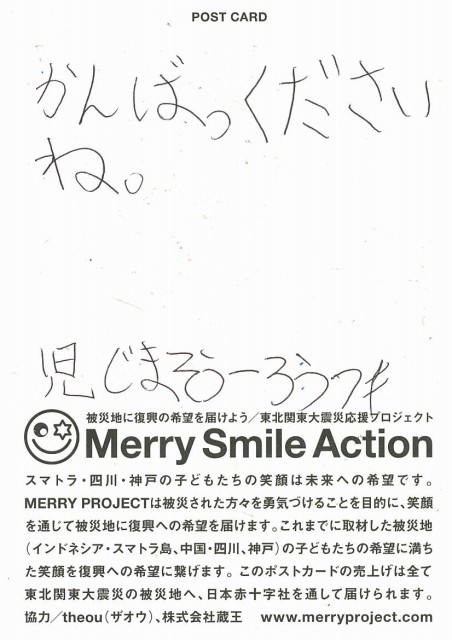 POST CARD
かんばっください
ね。
児じまそうーろうつキ
被災地に復興の希望を届けよう／東北関東大震災応援プロジェクト
Merry Smile Action
スマトラ・四川・神戸の子どもたちの笑顔は未来への希望です。
MERRY PROJECTは被災された方々を勇気づけることを目的に、笑顔
を通じて被災地に復興への希望を届けます。これまでに取材した被災地
（インドネシア・スマトラ島、中国・四川、神戸）の子どもたちの希望に満ち
た笑顔を復興への希望に繋げます。このポストカードの売上げは全て
東北関東大震災の被災地へ、日本赤十字社を通して届けられます。
協力／theou（ザオウ）、株式会社蔵王　www.merryproject.com